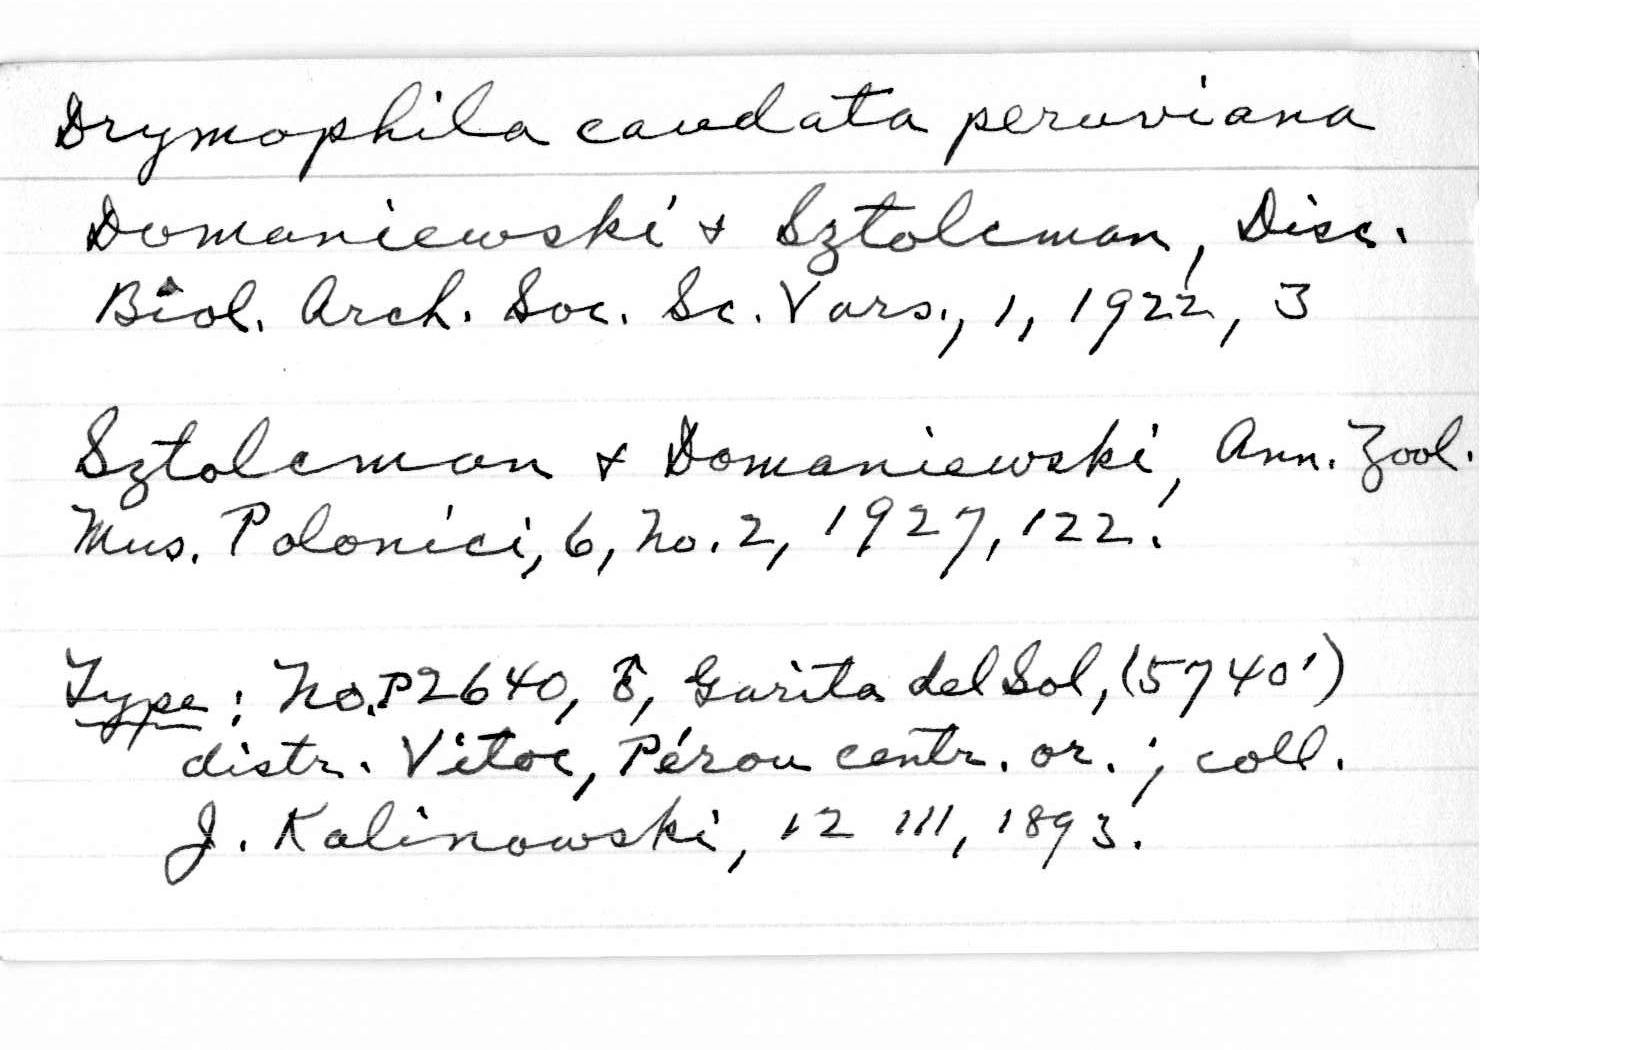 Drymophila caudata peruviana
Domaniewski & Sztolcman, Disc.
Biol. Arch. Soc. Sc. Vars., 1, 1922, 3
Sztolcman & Domaniewski, Ann. Zool.
Mus. Polonici, 6, No. 2, 1927, 122.
Type: No. P2640, ♂, Garita del Sol, (5740')
distr. Vitoc, Pérou centr. or.; coll.
J. Kalinowski, 12 III, 1893.